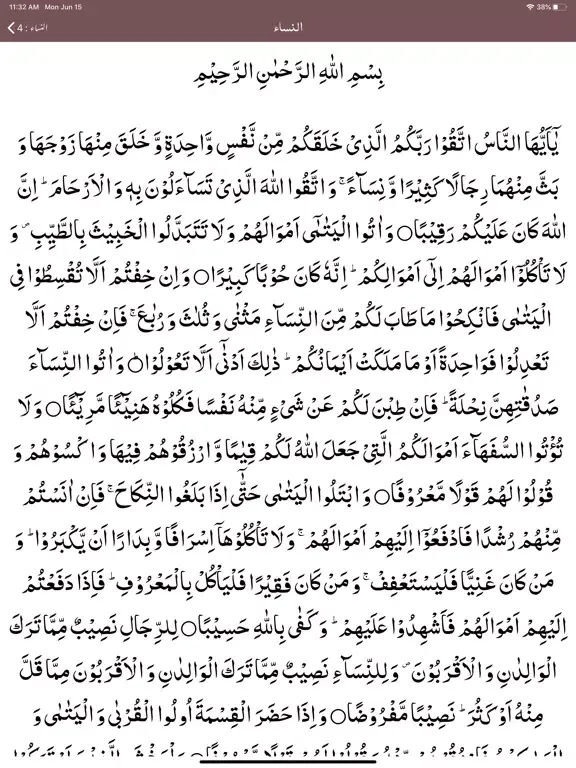 11:32 AM Mon Jun 15 38%
النساء : 4
النساء
بِسْمِ اللّٰهِ الرَّحْمٰنِ الرَّحِيْمِ
يٰۤاَيُّهَا النَّاسُ اتَّقُوْا رَبَّكُمُ الَّذِىْ خَلَقَكُمْ مِّنْ نَّفْسٍ وَّاحِدَةٍ وَّ خَلَقَ مِنْهَا زَوْجَهَا وَ
بَثَّ مِنْهُمَا رِجَالًا كَثِيْرًا وَّ نِسَآءً ۚ وَ اتَّقُوا اللّٰهَ الَّذِىْ تَسَآءَلُوْنَ بِهٖ وَ الْاَرْحَامَ ؕ اِنَّ
اللّٰهَ كَانَ عَلَيْكُمْ رَقِيْبًا○ وَ اٰتُوا الْيَتٰمٰٓى اَمْوَالَهُمْ وَ لَا تَتَبَدَّلُوا الْخَبِيْثَ بِالطَّيِّبِ ۪ وَ
لَا تَاْكُلُوْۤا اَمْوَالَهُمْ اِلٰٓى اَمْوَالِكُمْ ؕ اِنَّهٗ كَانَ حُوْبًا كَبِيْرًا○ وَ اِنْ خِفْتُمْ اَلَّا تُقْسِطُوْا فِى
الْيَتٰمٰى فَانْكِحُوْا مَا طَابَ لَكُمْ مِّنَ النِّسَآءِ مَثْنٰى وَ ثُلٰثَ وَ رُبٰعَ ۚ فَاِنْ خِفْتُمْ اَلَّا
تَعْدِلُوْا فَوَاحِدَةً اَوْ مَا مَلَكَتْ اَيْمَانُكُمْ ؕ ذٰلِكَ اَدْنٰٓى اَلَّا تَعُوْلُوْا○ وَ اٰتُوا النِّسَآءَ
صَدُقٰتِهِنَّ نِحْلَةً ؕ فَاِنْ طِبْنَ لَكُمْ عَنْ شَىْءٍ مِّنْهُ نَفْسًا فَكُلُوْهُ هَنِيْٓئًا مَّرِيْٓئًا○ وَ لَا
تُؤْتُوا السُّفَهَآءَ اَمْوَالَكُمُ الَّتِىْ جَعَلَ اللّٰهُ لَكُمْ قِيٰمًا وَّ ارْزُقُوْهُمْ فِيْهَا وَ اكْسُوْهُمْ وَ
قُوْلُوْا لَهُمْ قَوْلًا مَّعْرُوْفًا○ وَ ابْتَلُوا الْيَتٰمٰى حَتّٰۤى اِذَا بَلَغُوا النِّكَاحَ ۚ فَاِنْ اٰنَسْتُمْ
مِّنْهُمْ رُشْدًا فَادْفَعُوْۤا اِلَيْهِمْ اَمْوَالَهُمْ ۚ وَ لَا تَاْكُلُوْهَاۤ اِسْرَافًا وَّ بِدَارًا اَنْ يَّكْبَرُوْا ؕ وَ
مَنْ كَانَ غَنِيًّا فَلْيَسْتَعْفِفْ ۚ وَ مَنْ كَانَ فَقِيْرًا فَلْيَاْكُلْ بِالْمَعْرُوْفِ ؕ فَاِذَا دَفَعْتُمْ
اِلَيْهِمْ اَمْوَالَهُمْ فَاَشْهِدُوْا عَلَيْهِمْ ؕ وَ كَفٰى بِاللّٰهِ حَسِيْبًا○ لِلرِّجَالِ نَصِيْبٌ مِّمَّا تَرَكَ
الْوَالِدٰنِ وَ الْاَقْرَبُوْنَ ۪ وَ لِلنِّسَآءِ نَصِيْبٌ مِّمَّا تَرَكَ الْوَالِدٰنِ وَ الْاَقْرَبُوْنَ مِمَّا قَلَّ
مِنْهُ اَوْ كَثُرَ ؕ نَصِيْبًا مَّفْرُوْضًا○ وَ اِذَا حَضَرَ الْقِسْمَةَ اُولُوا الْقُرْبٰى وَ الْيَتٰمٰى وَ